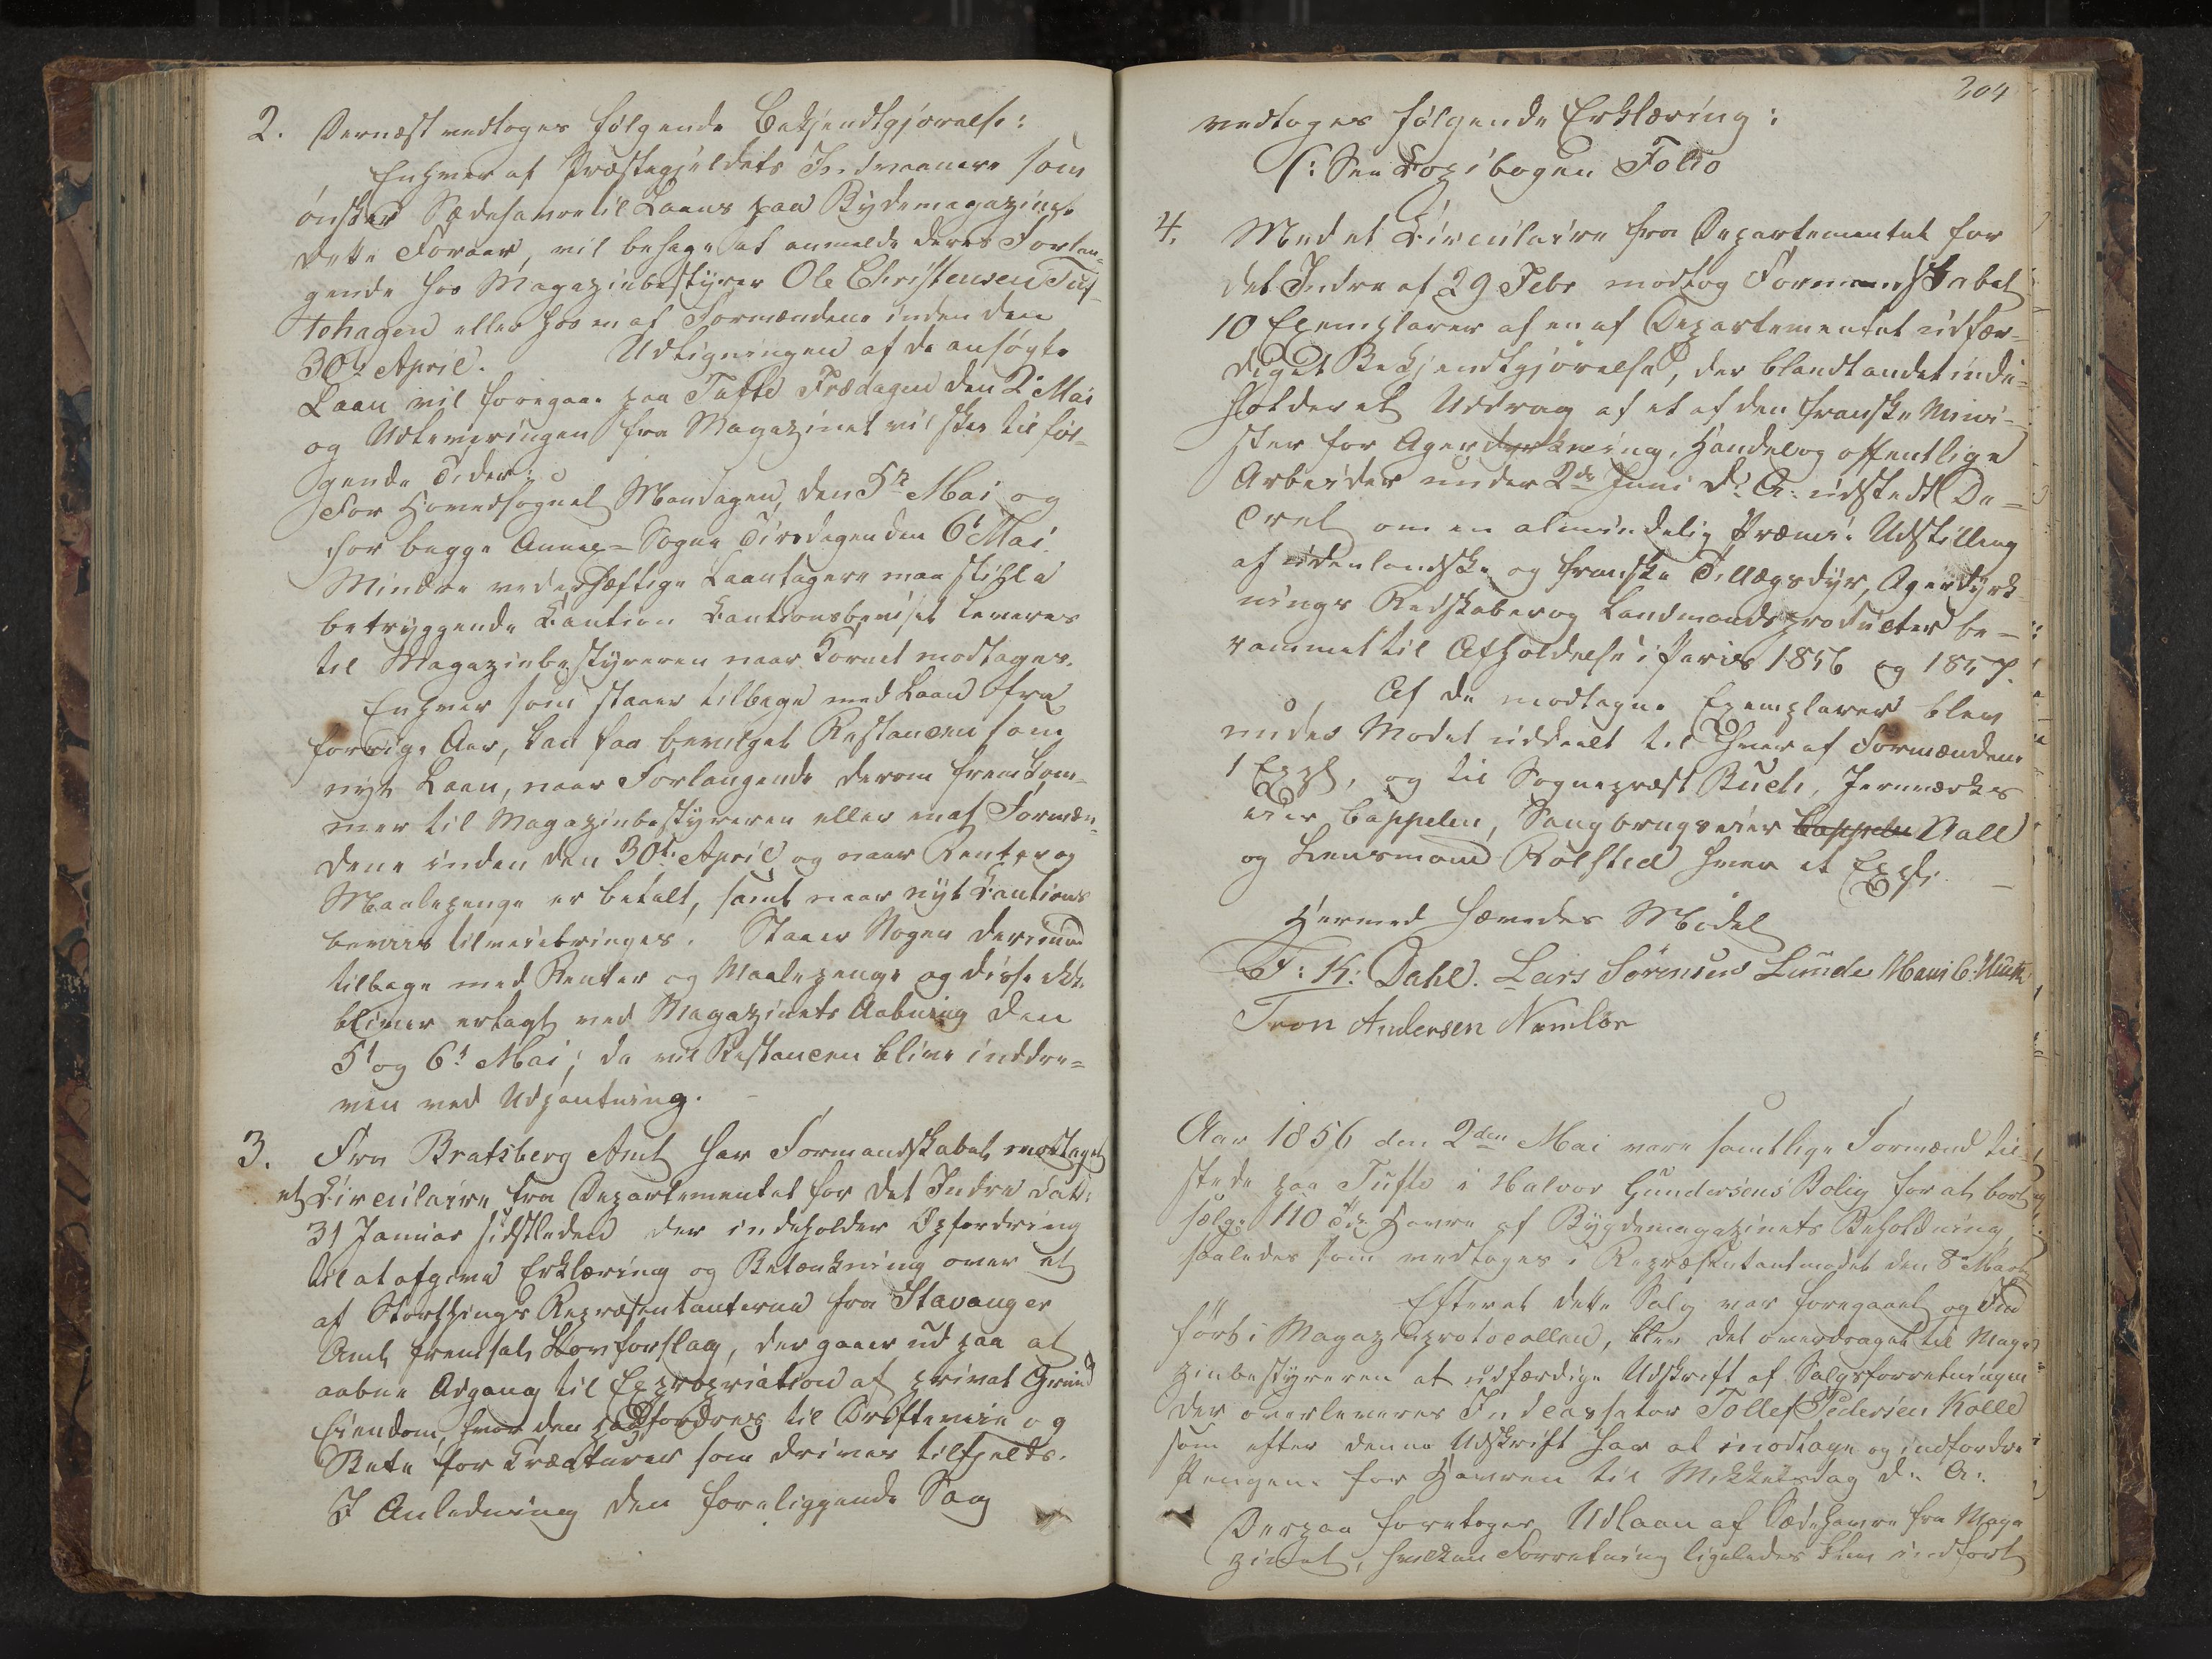 2. Dernæst vedtoges følgende Bekjendtgjørelse:
Enhver af Præstegjeldets Indvaanere som
ønsker Sædehavre til Laans paa Bydemagazinet
dette Foraar, vil behage at anmelde deres Forlan-
gende hos Magazinbestyrer Ole Christensen Tuf-
tehagen eller hos en af Formændene inden den
30te April. Udligningen af de ansøgte
Laan vil foregaae paa Tufte Fredagen den 2 Mai
og Udleveringen fra Magazinet vil skee til føl-
gende Tider:
For Hovedsognet Mandagen den 5te Mai og
for begge Annex-Sogne Tirsdagen den 6t Mai.
Mindre vederhæftige Laantagere maa stille
betryggende Kaution Kautionsbeviset leveres
til Magazinbestyreren naar Kornet modtages.
Enhver som staaer tilbage med Laan fra
forrige Aar, kan faa bevilget Restancen som
nyt Laan, naar Forlangende derom fremkom-
mer til Magazinbestyreren eller en af Formæn-
dene inden den 30te April og naar Renter og
Maalepenge er betalt, samt naar nyt Kautions
beviis tilveiebringes. Staaer Nogen derimod
tilbage med Renter og Maalepenge og disse ikke
bliver erlagt ved Magazinets Aabning den
5t og 6t Mai, da vil Restancen blive inddre-
ven ved Udpantning. -
3. Fra Bratsberg Amt har Formandskabet modtaget
et Circulaire fra Departementet for det Indre dat:
31 Januar sidstleden der indeholder Opfordring
til at afgive Erklæring og Betænkning over et
af Storthings Repræsentanterne fra Stavanger
Amt fremsat Lovforslag, der gaaer ud paa at
aabne Adgang til Expropriation af privat Grund
Eiendom, hvor den udfordres til Drifteveie og
Bete for Kræaturer som drives tilfjelds.
I Anledning den foreliggende Sag
204
vedtoges følgende Erklæring:
/: See Kopibogen Folio
4. Med et Circulaire fra Departementet for
det Indre af 29 Febr modtog Formandskabet
10 Exemplarer af en af Departementet udfær-
diget Bekjendtgjørelse, der blandt andet inde-
holder et Uddrag af et af den franske Mini-
ster for Agerdyrkning, Handel og offentlige
Arbeider under 2de Juni d: A: udstedt De-
cret om en almindelig Præmie Udstilling
af udenlandske og franske Tillægsdyr, Agerdyrk
nings Redskaber og Landmandsproducter be-
rammet til Afholdelse i Paris 1856 og 1857.
Af de modtagne Exemplarer blev
under Mødet uddeelt til hver af Formændene
1 Expl, og til Sognepræst Buch, Jernværks
eier Cappelen, Saugbrugseier Cappelen Aall
og Lensmand Rolsted hver et Expl. -
Hermed hævedes Mødet
F: K: Dahl. Lars Sörensen Lunde Hans C: 
Tron Andersen Namlos
Aar 1856 den 2den Mai vare samtlige Formænd til
stede paa Tufte i Halvor Gundersens Bolig for at bort
sælge 110 Tdr Havre af Bygdemagazinets Beholdning,
saaledes som vedtoges i Repræsentantmødet den 8 Marts
Efterat dette Salg var foregaaet og Ind
ført i Magazinprotocollen, blev det overdraget til Maga
zinbestyreren at udfærdige Udskrift af Salgsforretningen
der overleveres Indcassator Tollef Pedersen Kolle
som efter denne Udskrift har at modtage og indfordre
Pengene for Havren til Mikkelsdag d: A:
Derpaa foretoges Udlaan af Sædehavre fra Maga
zinet, hvilken Forretning ligeledes blev indført